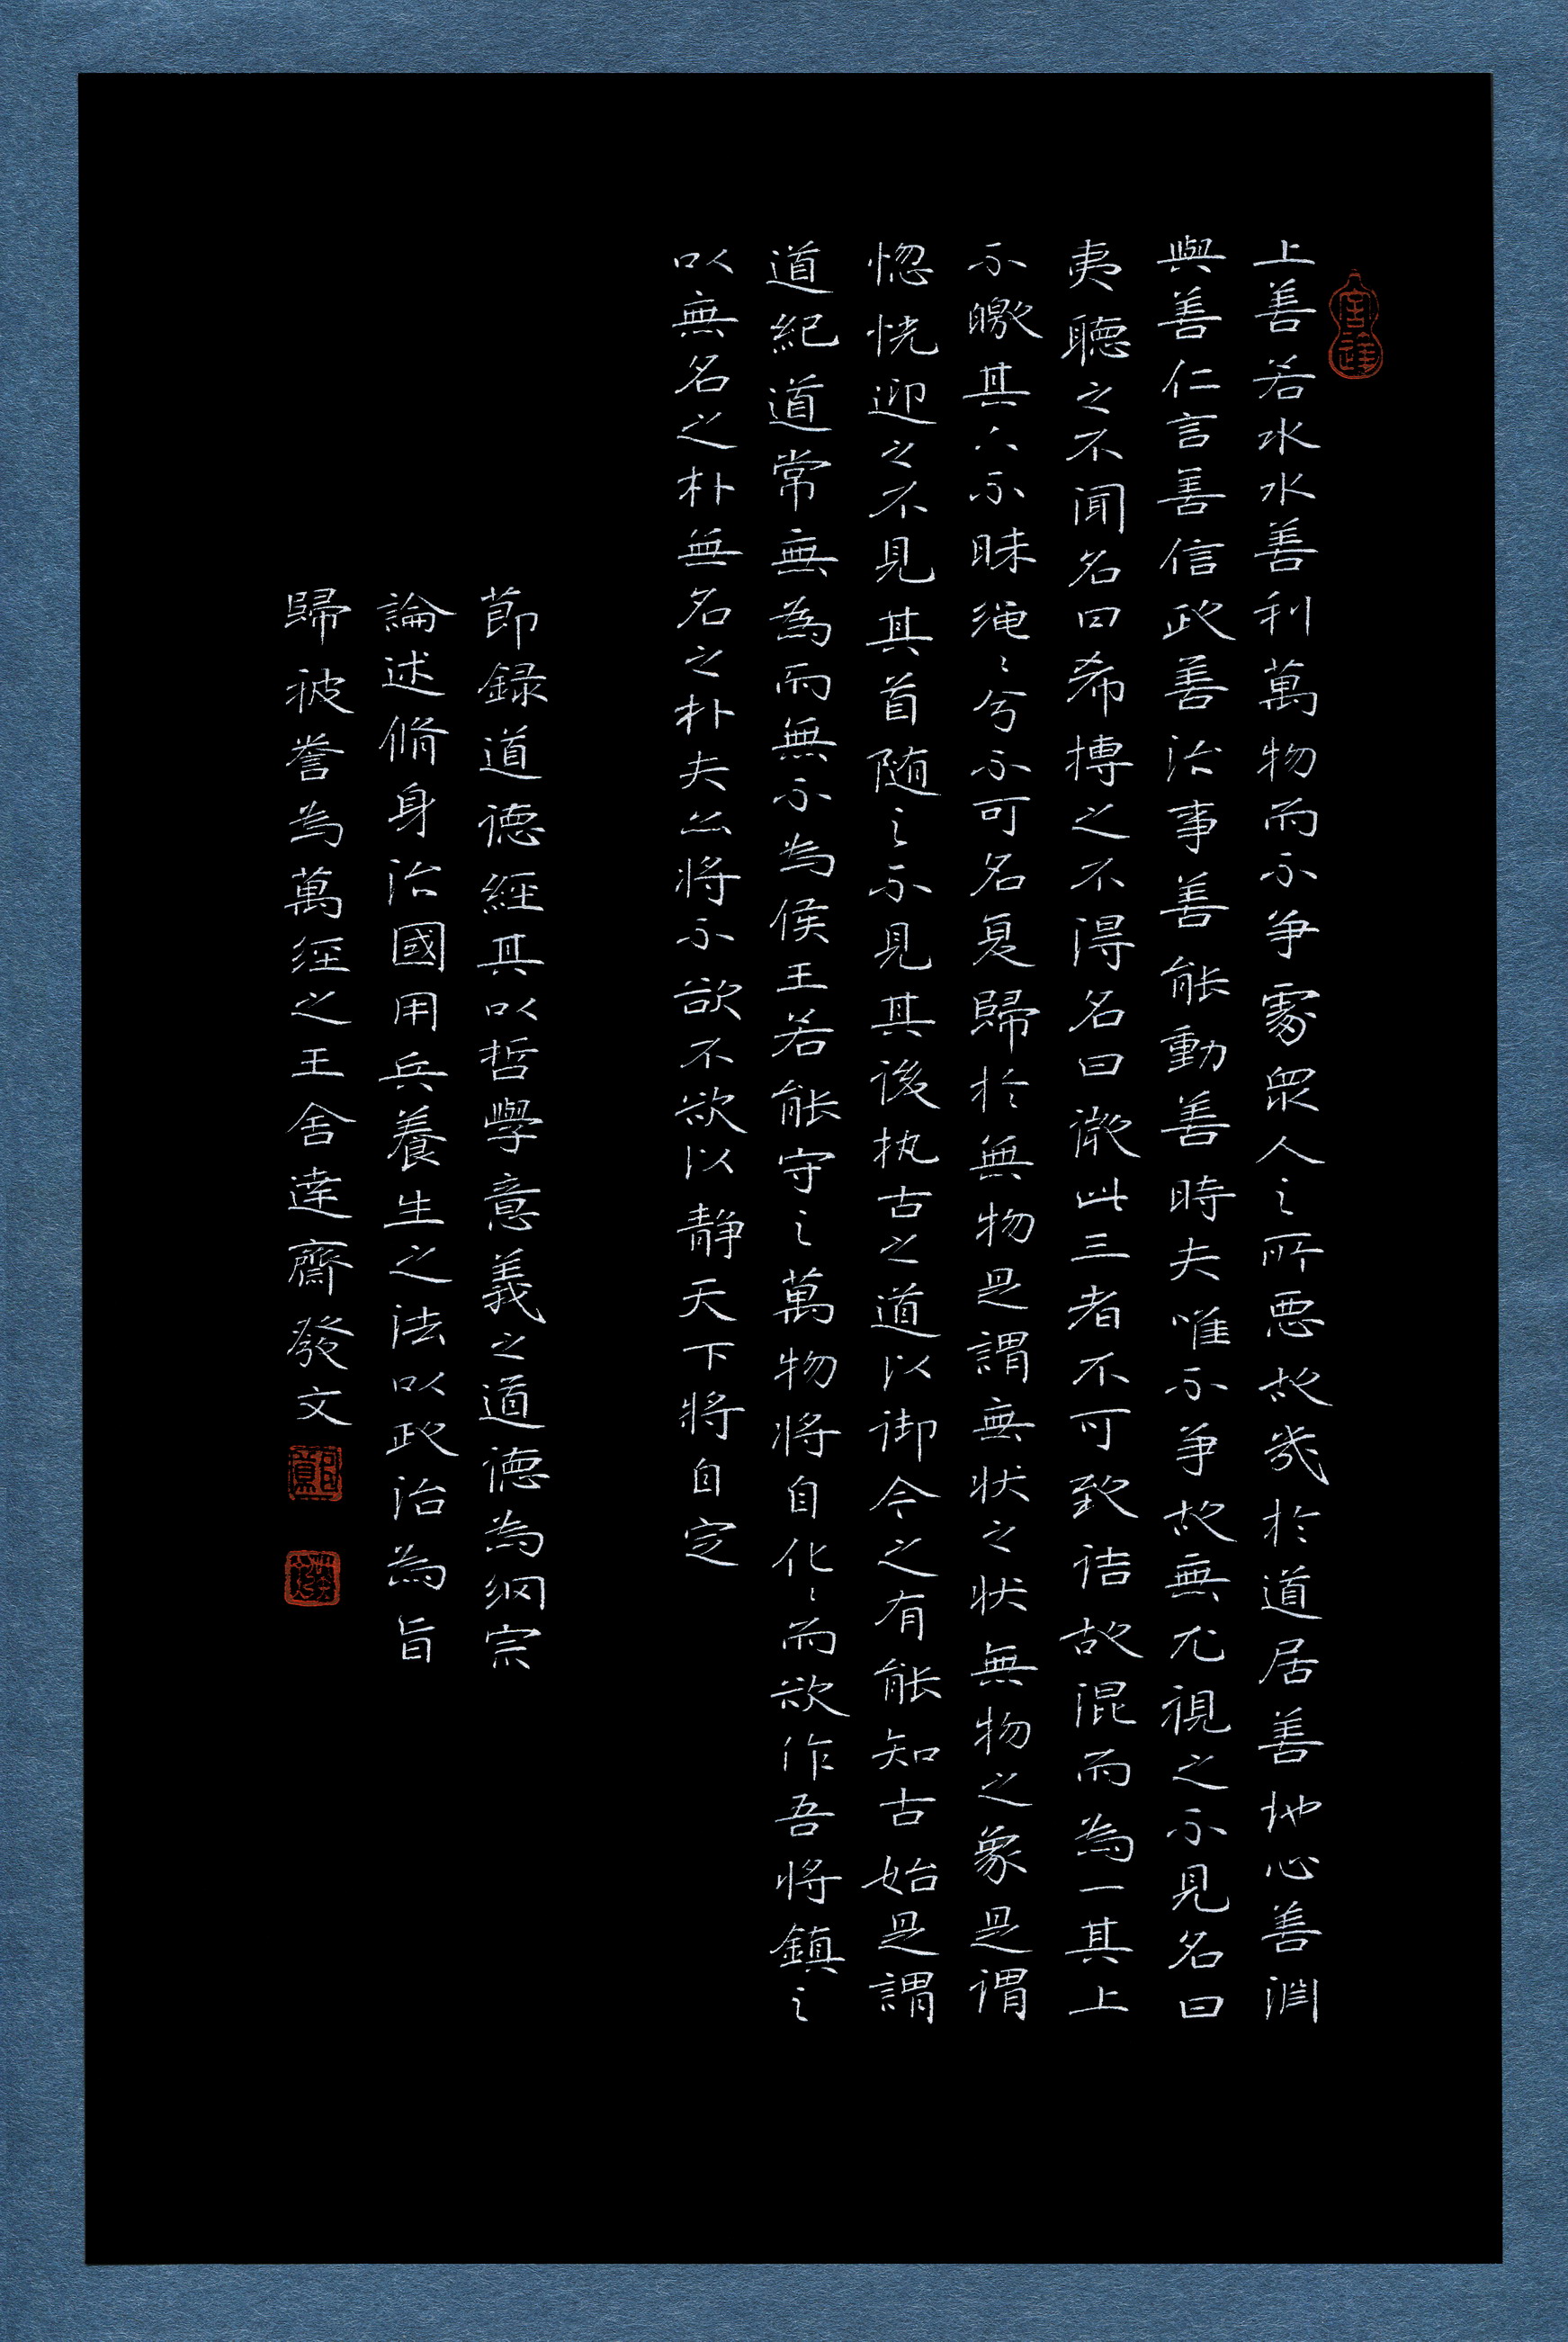 上善若水水善利萬物而不争處衆人之所惡故幾於道居善地心善淵
與善仁言善信政善治事善能動善時夫唯不争故無尤視之不見名曰
夷聽之不聞名曰希搏之不得名曰微此三者不可致詰故混而為一其上
不皦其下不昧绳〻兮不可名复歸於無物是謂無状之状無物之象是谓
惚恍迎之不見其首随之不見其後执古之道以御今之有能知古始是謂
道紀道常無為而無不為侯王若能守之萬物将自化〻而欲作吾将鎮之
以無名之朴無名之朴夫亦将不欲不欲以静天下将自定
節録道德經其以哲學意義之道德為纲宗
論述脩身治國用兵養生之法以政治為旨
歸被誉為萬经之王舍達齋發文